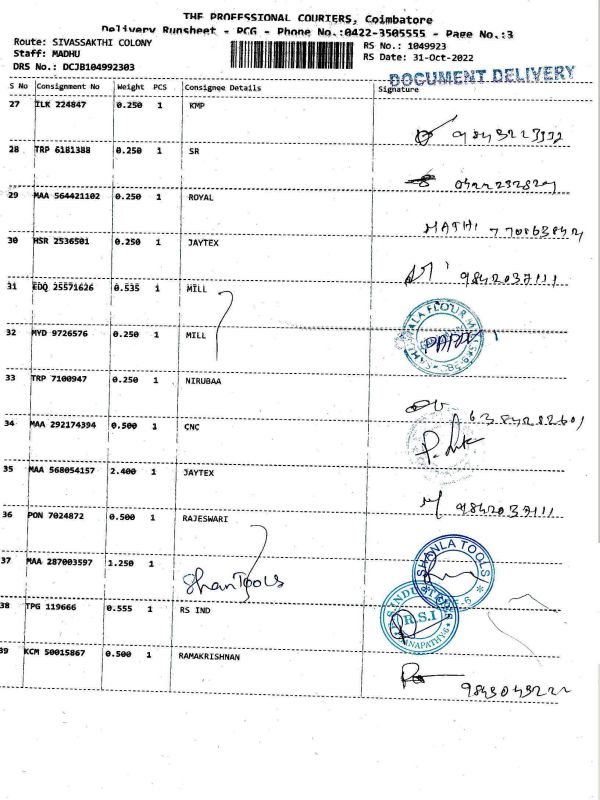 THE PROFESSIONAL COURIERS, Coimbatore
Delivery Runsheet - PCG - Phone No.:0422-3505555 - Page No.:3
Route: SIVASSAKTHI COLONY
Staff: MADHU
DRS No.: DCJB104992303
RS No.: 1049923
RS Date: 31-Oct-2022
DOCUMENT DELIVERY
S No Consignment No Weight PCS Consignee Details Signature
27 ILK 224847 0.250 1 KMP
28 TRP 6181388 0.250 1 SR
29 MAA 564421102 0.250 1 ROYAL
MATHI
30 HSR 2536501 0.250 1 JAYTEX
9842037111
31 EDQ 25571626 0.535 1 MILL
32 MYD 9726576 0.250 1 MILL
FLOUR MILLS
33 TRP 7100947 0.250 1 NIRUBAA
34 MAA 292174394 0.500 1 CNC
35 MAA 568054157 2.400 1 JAYTEX
9842037111
36 PON 7024872 0.500 1 RAJESWARI
37 MAA 287003597 1.250 1
Shan Tools
SHANLA TOOLS
38 TPG 119666 0.555 1 RS IND
R.S.I
39 KCM 50015867 0.500 1 RAMAKRISHNAN